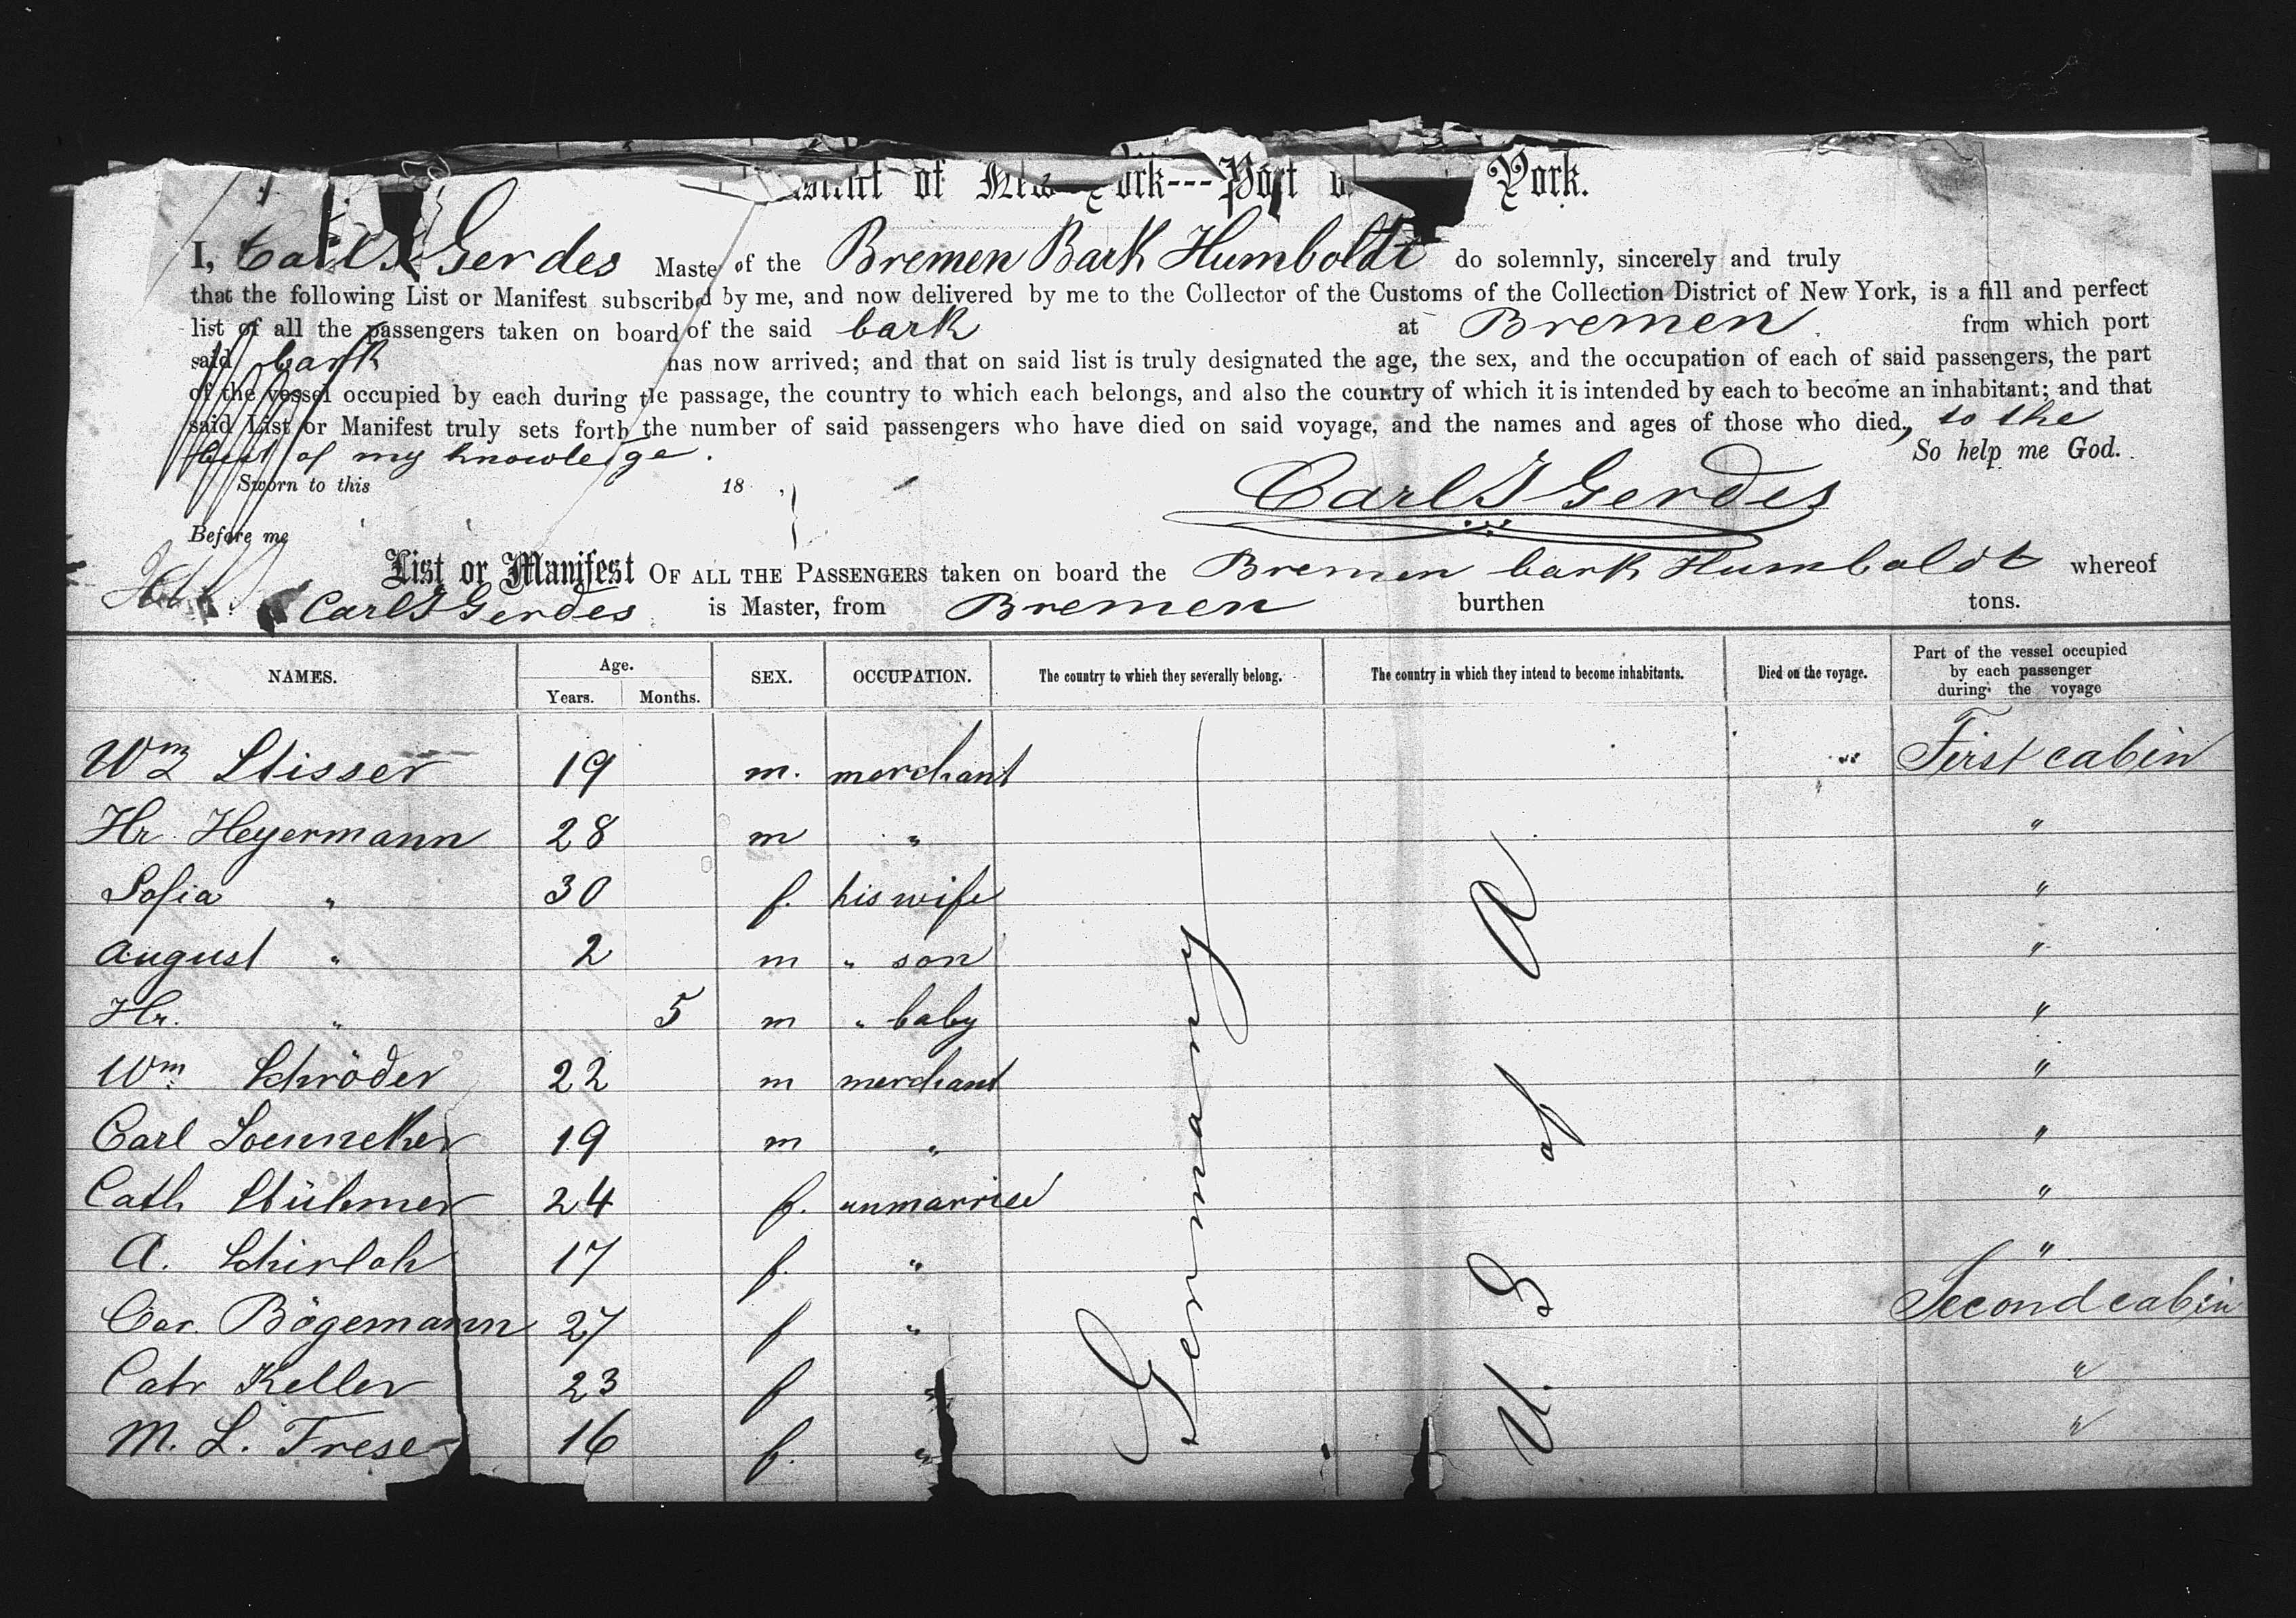 District of New York---Port of York.
I, Carl J Gerdes Master of the Bremen Bark Humboldt do solemnly, sincerely and truly
that the following List or Manifest subscribed by me, and now delivered by me to the Collector of the Customs of the Collection District of New York, is a full and perfect
list of all the passengers taken on board of the said bark at Bremen from which port
said bark has now arrived; and that on said list is truly designated the age, the sex, and the occupation of each of said passengers, the part
of the vessel occupied by each during the passage, the country to which each belongs, and also the country of which it is intended by each to become an inhabitant; and that
said List or Manifest truly sets forth the number of said passengers who have died on said voyage, and the names and ages of those who died, to the
best of my knowledge. So help me God.
Sworn to this 18 , Carl J Gerdes
Before me
List or Manifest OF ALL THE PASSENGERS taken on board the Bremen bark Humboldt whereof
Carl J Gerdes is Master, from Bremen burthen tons.
NAMES. Age. Years. Months. SEX. OCCUPATION. The country to which they severally belong. The country in which they intend to become inhabitants. Died on the voyage. Part of the vessel occupied by each passenger during the voyage
Wm Stisser 19 m. merchant First cabin
Hr. Heyermann 28 m " "
Sofia " 30 f. his wife "
August " 2 m " son "
Hr. " 5 m " baby "
Wm Schröder 22 m merchant "
Carl Loenneker 19 m " "
Cath Stühmer 24 f. unmarried "
A. Schirloh 17 f. " "
Car. Bögemann 27 f " Second cabin
Catr Keller 23 f " "
M. L. Frese 16 f. " "
Germany
U. S of A